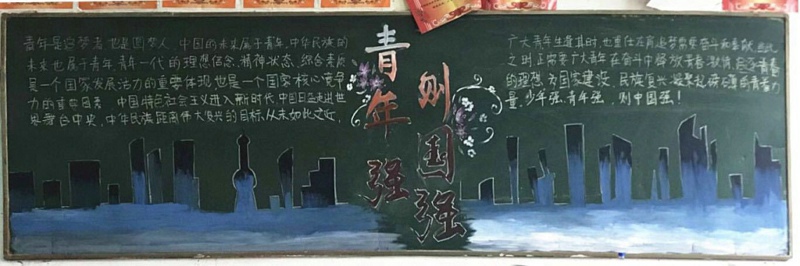 青年是追梦者也是圆梦人，中国的未来属于青年，中华民族的
未来也属于青年青年一代的理想信念、精神状态、综合素质
是一个国家发展活力的重要体现也是一个国家核心竞争
力的重要因素 中国特色社会主义进入新时代，中国日益走近世
界舞台中央，中华民族距离伟大复兴的目标从未如此之近，
青年强
则国强
广大青年生逢其时，也重任在肩追梦需要奋斗和奉献
之时正需要广大青年在奋斗中释放青春激情
的理想，为国家建设，民族复兴
量，少年强、青年强，则中国强！